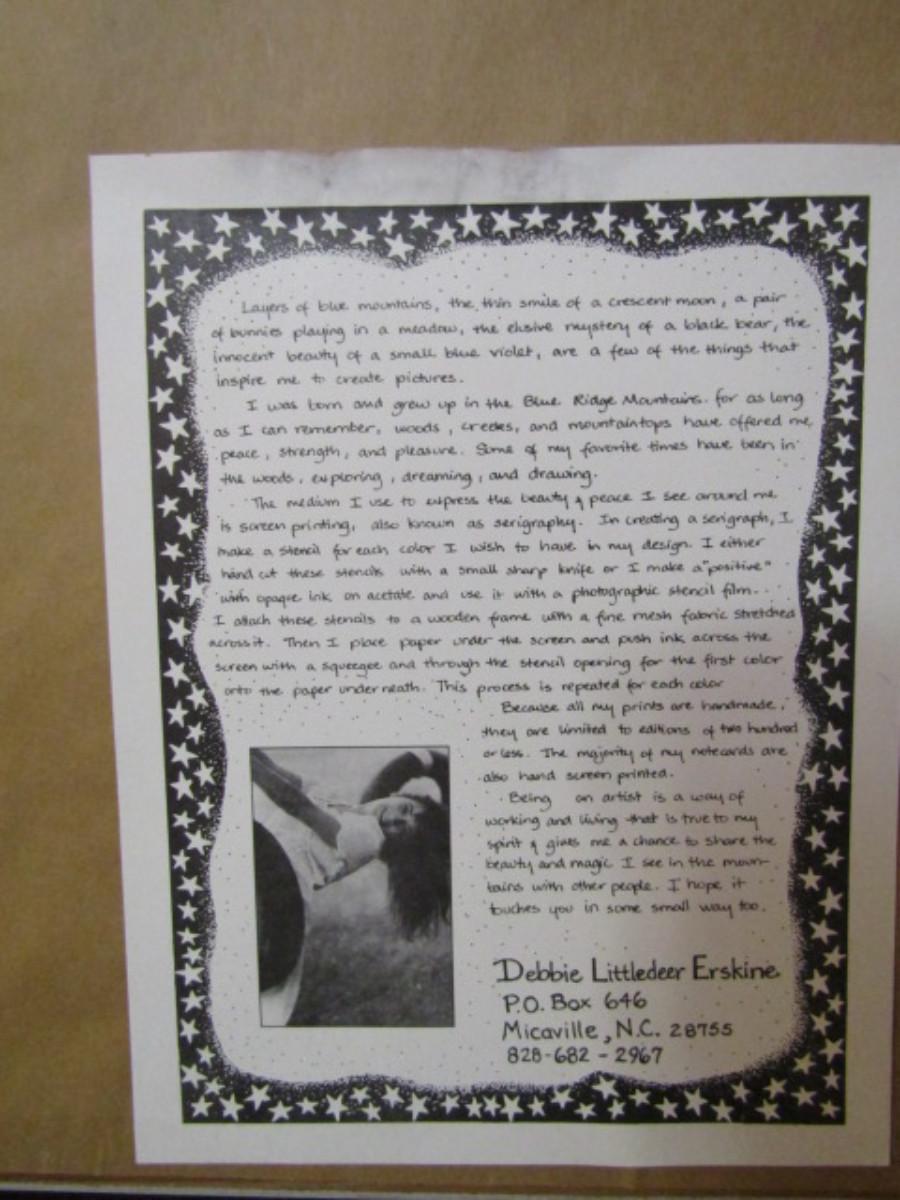 Layers of blue mountains, the thin smile of a crescent moon, a pair
of bunnies playing in a meadow, the elusive mystery of a black bear, the
innocent beauty of a small blue violet, are a few of the things that
inspire me to create pictures.
I was born and grew up in the Blue Ridge Mountains. for as long
as I can remember, woods, creeks, and mountaintops have offered me
peace, strength, and pleasure. Some of my favorite times have been in
the woods, exploring, dreaming, and drawing.
The medium I use to express the beauty & peace I see around me
is screen printing, also known as serigraphy. In creating a serigraph, I
make a stencil for each color I wish to have in my design. I either
hand cut these stencils with a small sharp knife or I make a "positive"
with opaque ink on acetate and use it with a photographic stencil film.
I attach these stencils to a wooden frame with a fine mesh fabric stretched
across it. Then I place paper under the screen and push ink across the
screen with a squeegee and through the stencil opening for the first color
onto the paper underneath. This process is repeated for each color
Because all my prints are handmade,
they are limited to editions of two hundred
or less. The majority of my notecards are
also hand screen printed.
Being an artist is a way of
working and living that is true to my
spirit & gives me a chance to share the
beauty and magic I see in the moun-
tains with other people. I hope it
touches you in some small way too.
Debbie Littledeer Erskine
P.O. Box 646
Micaville, N.C. 28755
828-682-2967